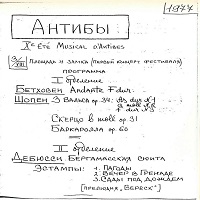 1977
АНТИБЫ
Xe Été Musical d'Antibes
9/VIII Площадь и замка (первый концерт фестиваля)
программа
I отделение
Бетховен Andante F dur
Шопен 3 Вальса op. 34: As dur №1
a moll №2
F dur №3
Скерцо b moll op 31
Баркаролла op 60
II отделение
Дебюсси Бергамасская сюита
Эстампы: 1. Пагоды
2 Вечер в Гренаде
3. Сады под дождём
[прелюдия „Вереск"]